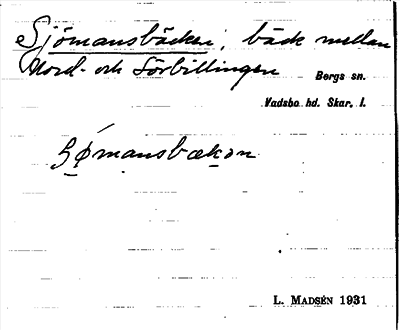 Sjömansbäcken, bäck mellan
Nord- och Sörbillingen
Bergs sn.
Vadsbo hd. Skar. l.
L. MADSÉN 1931